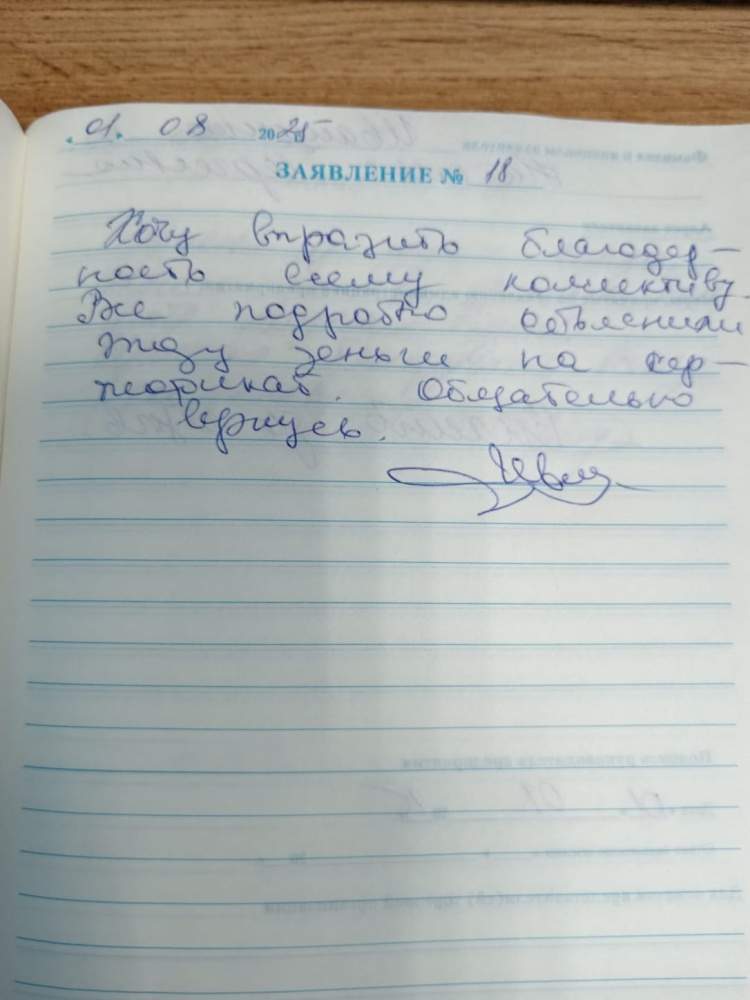 « 01 » 08 2025
ЗАЯВЛЕНИЕ № 18
Хочу выразить благодар-
ность всему коллективу.
Все подробно объяснили
Жду деньги на сер-
тификат. Обязательно
вернусь.